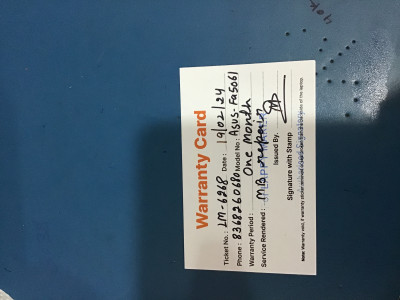 Warranty Card
Ticket No.: LM-6968 Date: 19/02/24
Phone: 8368260680 Model No: Asus-Fa506i
Warranty Period: One Month
Service Rendered: MB repair
Issued By.
Signature with Stamp
Note: Warranty void, if warranty sticker
of the laptop.
40K